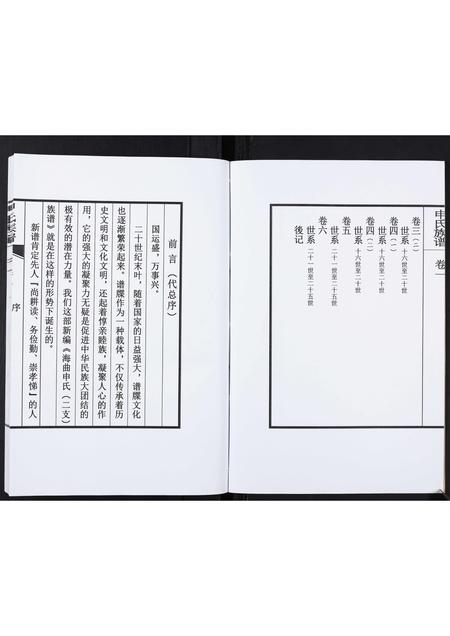 申氏族谱 卷一
卷三（二）
世系 十六世至二十世
卷四（一）
世系 十六世至二十世
卷四（二）
世系 十六世至二十世
卷五
世系 二十一世至二十五世
卷六
世系 二十一世至二十五世
後记
前言（代总序）
国运盛，万事兴。
二十世纪末叶，随着国家的日益强大，谱牒文化
也逐渐繁荣起来。谱牒作为一种载体，不仅传承着历
史文明和文化文明，还起着惇亲睦族，凝聚人心的作
用，它的强大的凝聚力无疑是促进中华民族大团结的
极有效的潜在力量。我们这部新编《海曲申氏（二支）
族谱》就是在这样的形势下诞生的。
新谱肯定先人『尚耕读、务俭勤、崇孝悌』的人
序